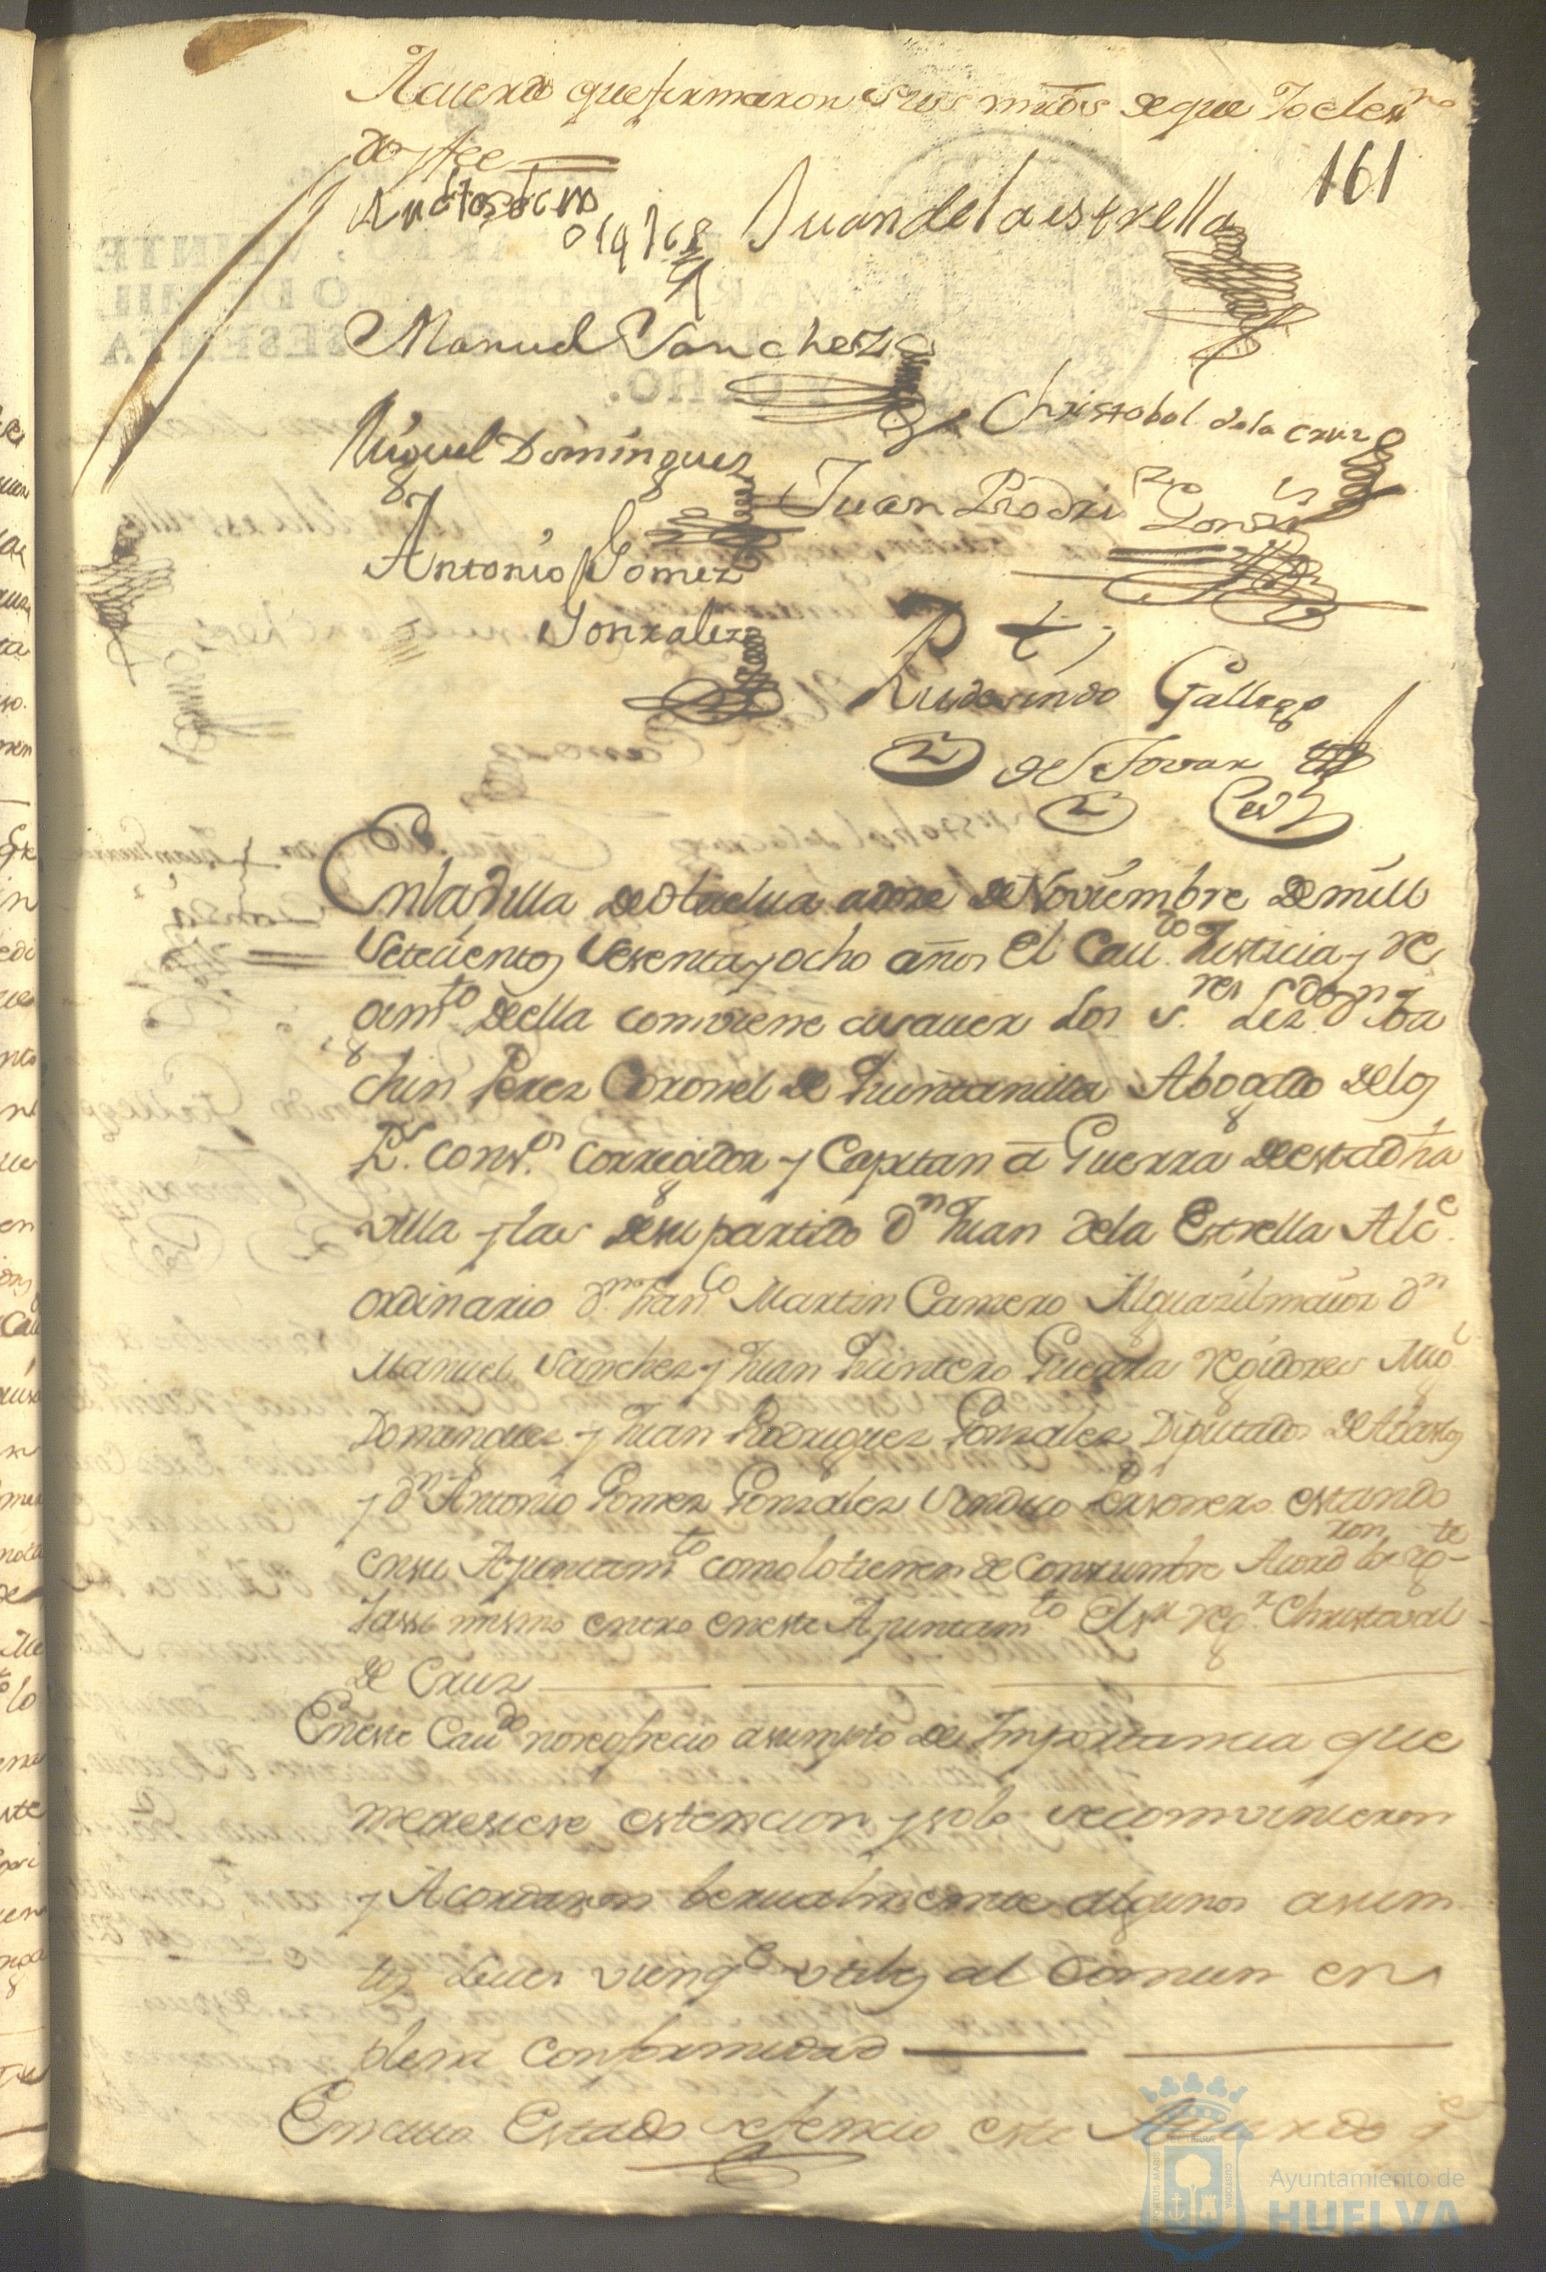 Acuerdo que firmaron sus mrds de que Yo el es.no
doy fee
161
Juan de la estrella
Manuel Sanchez
Christobal de la cruz
Miguel Dominguez
Juan Rodri.zo Gonzs
Antonio Gomez
Gonzalez
Rudesindo Gallego
de Tovar
En la Villa de Huelua a doze de Noviembre de mill
Setecientos Sesenta y ocho años el Cau.do Justicia y Re
gimto de ella conviene a sauer los S.res Lizdo Dn Joa
chin Perez Coronel de Quintanilla Abogado de los
Rs. Cons.os Corregidor y Capitan a Guerra de esta dha
Villa y las de su partido Dn Juan de la Estrella Alce.
ordinario Dn. Franco Martin Camero Alguazil maior Dn
Manuel Sanchez y Juan Quintero Guerra Regidores Migl
Dominguez y Juan Rodriguez Gonzalez Diputados de Abastos
y Dn Antonio Gomez Gonzalez Sindico Personero estando
en su Ayuntamto como lo tienen de Constumbre Acordaron lo sigte
Y assi mismo entro en este Ayuntamto El sr regr. Christoval
de Cruz
En este Caudo no se ofrecio asumpto de Importancia que
meresiese estencion y solo se convinieron
y Acordaron berualmente algunos asum
tos leues vien qe vtiles al Comun en
plena conformidad
En cuio Estado se fenecio este Acuerdo qe
Ayuntamiento de
HUELVA